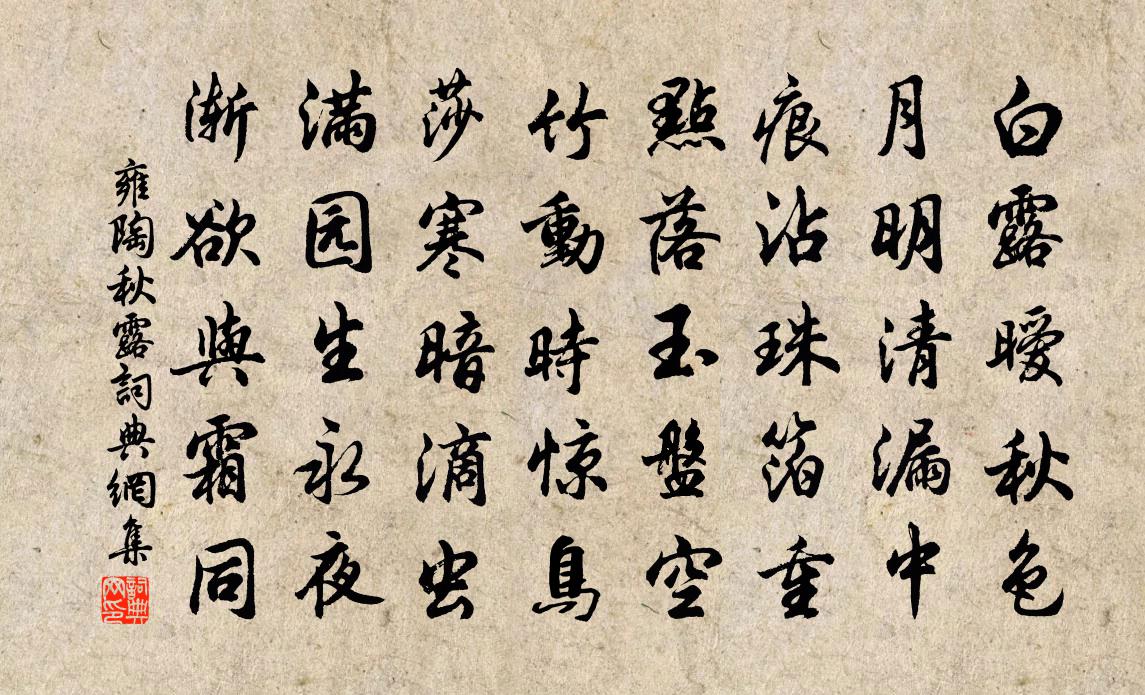 白露曖秋色
月明清漏中
痕沾珠箔重
點落玉盤空
竹動時惊鳥
莎寒暗滴虫
满园生永夜
渐欲與霜同
雍陶秋露詞典網集
詞典网印